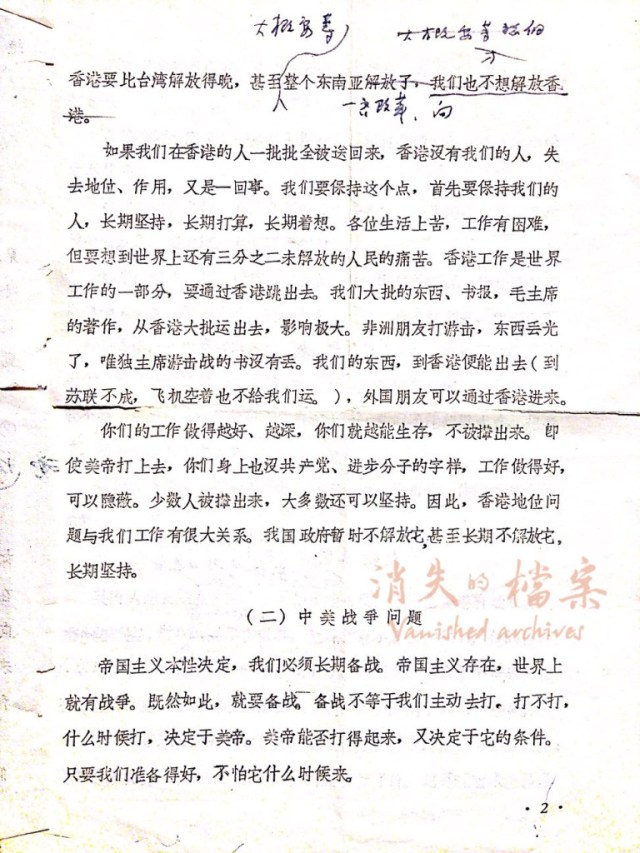 大概要等
香港要比台湾解放得晚，甚至整个东南亚解放了，我们也不想解放香
港。
如果我们在香港的人一批批全被送回来，香港没有我们的人，失
去地位、作用，又是一回事。我们要保持这个点，首先要保持我们的
人，长期坚持，长期打算，长期着想。各位生活上苦，工作有困难，
但要想到世界上还有三分之二未解放的人民的痛苦。香港工作是世界
工作的一部分，要通过香港跳出去。我们大批的东西、书报，毛主席
的著作，从香港大批运出去，影响极大。非洲朋友打游击，东西丢光
了，唯独主席游击战的书没有丢。我们的东西，到香港便能出去（到
苏联不成，飞机空着也不给我们运。），外国朋友可以通过香港进来。
你们的工作做得越好、越深，你们就越能生存，不被撵出来。即
使美帝打上去，你们身上也没共产党、进步分子的字样，工作做得好，
可以隐蔽。少数人被撵出来，大多数还可以坚持。因此，香港地位问
题与我们工作有很大关系。我国政府暂时不解放它，甚至长期不解放它，
长期坚持。
消失的檔案
Vanished archives
（二）中美战争问题
帝国主义本性决定，我们必须长期备战。帝国主义存在，世界上
就有战争。既然如此，就要备战。备战不等于我们主动去打。打不打，
什么时候打，决定于美帝。美帝能否打得起来，又决定于它的条件。
只要我们准备得好，不怕它什么时候来。
·2·